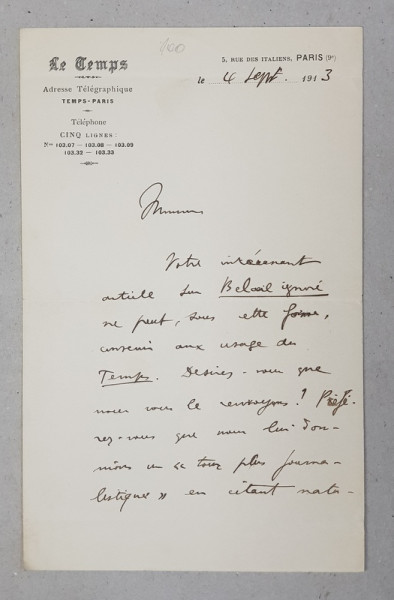 100
Le Temps
5, RUE DES ITALIENS, PARIS (9e)
le 4 Sept. 1913
Adresse Télégraphique
TEMPS-PARIS
Téléphone
CINQ LIGNES :
Nos 103.07 — 103.08 — 103.09
103.32 — 103.33
Monsieur
Votre intéressant
article sur Beloeil ignoré
ne peut, sous cette forme,
convenir aux usages du
Temps. Désirez-vous que
nous vous le renvoyions ? Préfé-
rez-vous que nous lui don-
nions un « tour plus journa-
listique » en citant natu-